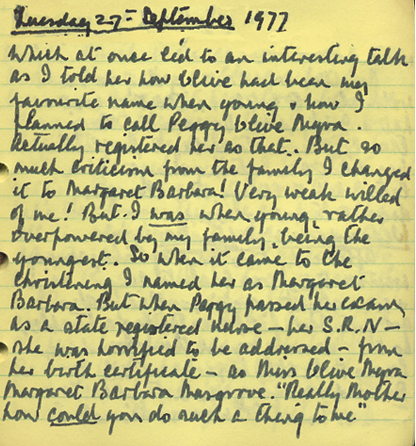 Tuesday 27th September 1977
Which at once led to an interesting talk
as I told her how Olive had been my
favourite name when young & how I
planned to call Peggy Olive Myra.
Actually registered her as that. But so
much criticism from the family I changed
it to Margaret Barbara! Very weak willed
of me! But I was when young, rather
overpowered by my family, being the
youngest. So when it came to the
christening I named her as Margaret
Barbara. But when Peggy passed her exams
as a state registered nurse – her S.R.N –
she was horrified to be addressed – from
her birth certificate – as Miss Olive Myra
Margaret Barbara Musgrove. "Really Mother
how could you do such a thing to me"